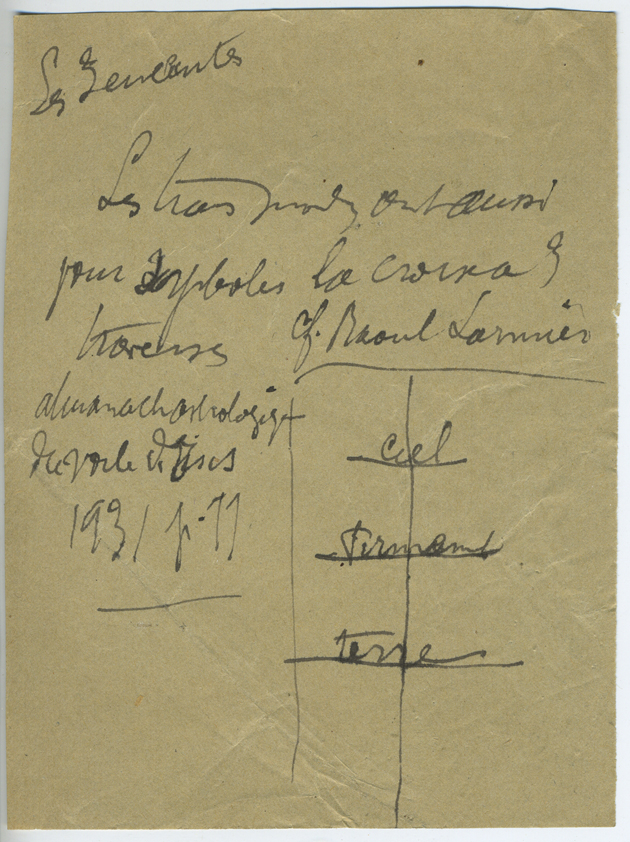 Les
Les trois mondes ont aussi
pour symboles la croix a 3
traverses cf. Raoul Larmier
almanach astrologique
du voile d'Isis
1931 p. 77
ciel
firmament
terre